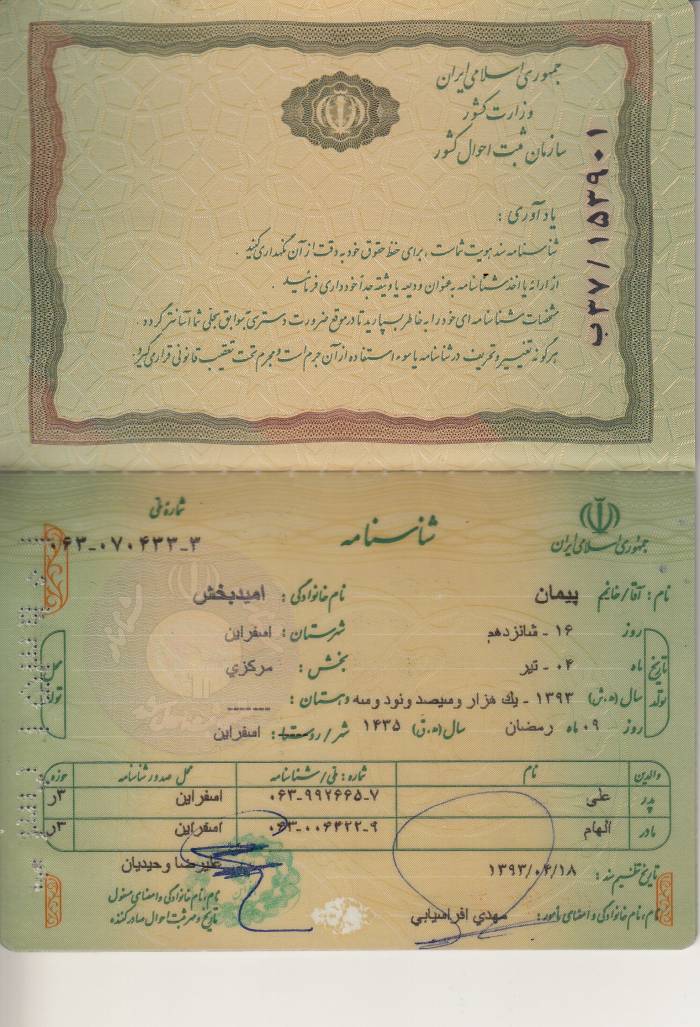 جمهوری اسلامی ایران
وزارت کشور
سازمان ثبت احوال کشور
ب ۳۷ / ۱۵۳۹۰۱
یادآوری :
شناسنامه سند هویت شماست ، برای حفظ حقوق خود به دقت از آن نگهداری کنید .
از ارائه یا اخذ شناسنامه به عنوان ودیعه یا وثیقه جداً خودداری فرمائید .
مشخصات شناسنامه ای خود را به خاطر بسپارید تا در موقع ضرورت دسترسی به سوابق سجلی شما آسانتر گردد .
هرگونه تغییر و تحریف در شناسنامه یا سوء استفاده از آن جرم است و مجرم تحت تعقیب قانونی قرار می گیرد .
جمهوری اسلامی ایران
شناسنامه
شماره ملی
۰۶۳-۰۷۰۴۳۳-۳
نام : آقا / خانم پیمان نام خانوادگی : امیدبخش
تاریخ تولد
روز ۱۶ - شانزدهم شهرستان : اسفراین
ماه ۰۴ - تیر بخش : مرکزي
سال (ه.ش) ۱۳۹۳ - یك هزار و سیصد و نود و سه دهستان : ------
روز ۰۹ ماه رمضان سال (ه.ق) ۱۴۳۵ شهر / روستا : اسفراین
محل تولد
والدین نام شماره : ملی / شناسنامه محل صدور شناسنامه حوزه
پدر علی ۰۶۳-۹۹۲۶۶۵-۷ اسفراین ۳ر
مادر الهام ۰۶۳-۰۰۶۴۲۲-۹ اسفراین ۳ر
تاریخ تنظیم سند : ۱۳۹۳/۰۴/۱۸ علیرضا وحیدیان
نام ، نام خانوادگی و امضای مأمور : مهدي افراسیابي
نام ، نام خانوادگی و امضای مسئول
تاریخ و مهر ثبت احوال صادرکننده